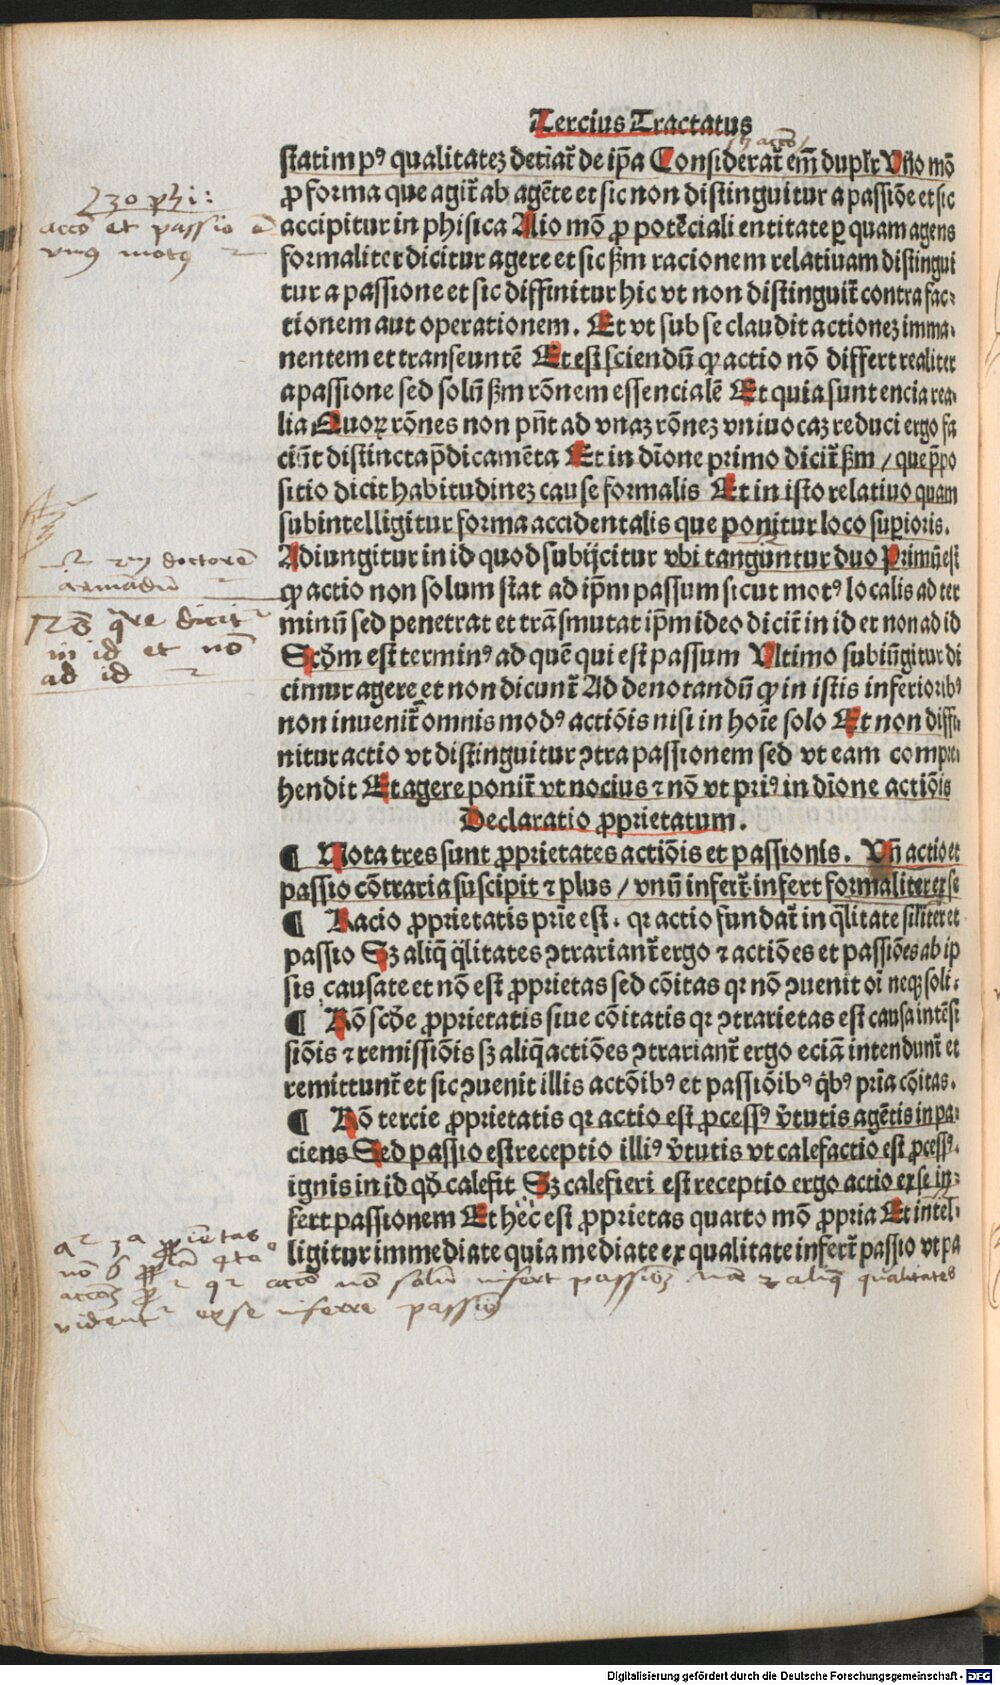 Tercius Tractatus
statim pꝰ qualitatez det̄iat̄ de ip̄a Considerat̄ em̄ duplr̄ Vno mō
ꝓ forma que agit̄ ab agēte et sic non distinguitur a passiōe et sic
accipitur in phisica Alio mō ꝓ potēciali entitate ꝑ quam agens
formaliter dicitur agere et sic ẜm racionem relatiuam distingui
tur a passione et sic diffinitur hic vt non distinguit̄ contra fac⸗
tionem aut operationem. Et vt sub se claudit actionez imma⸗
nentem et transeuntē Et est sciendū ꝙ actio nō differt realiter
a passione sed solū ẜm rōnem essencialē Et quia sunt encia rea⸗
lia Quoꝝ rōnes non pn̄t ad vnaz rōnez vniuocaz reduci ergo fa
ciūt distincta p̄dicamēta Et in dīone primo dicit̄ ẜm / que p̄po
sitio dicit habitudinez cause formalis Et in isto relatiuo quam
subintelligitur forma accidentalis que ponitur loco suꝑioris.
Adiungitur in id quod subijcitur vbi tanguntur duo Primū est
ꝙ actio non solum stat ad ip̄m passum sicut motꝰ localis ad ter
minū sed penetrat et trāsmutat ip̄m ideo dicit̄ in id et non ad id
Scd̄m est terminꝰ ad quē qui est passum Vltimo subiūgitur di
cimur agere et non dicunt̄ Ad denotandū ꝙ in istis inferioribꝰ
non inuenit̄ omnis modꝰ actiōis nisi in hoīe solo Et non diffi⸗
nitur actio vt distinguitur ↄtra passionem sed vt eam compre⸗
hendit Et agere ponit̄ vt nocius ⁊ nō vt priꝰ in dīone actiōis
Declaratio ꝓprietatum.
¶ Nota tres sunt ꝓprietates actiōis et passionis. Vn̄ actio et
passio cōtraria suscipit ⁊ plus / vnū infert̄. infert formaliter ex se
¶ Racio ꝓprietatis prīe est. qr actio fundat̄ in q̄litate silīter et
passio Sꝫ aliq̄ q̄litates ↄtrariant̄ ergo ⁊ actiōes et passiōes ab ip
sis causate et nō est ꝓprietas sed cōitas qr nō ↄuenit oī neqꝫ soli⸗
¶ Rō scd̄e ꝓprietatis siue cōitatis qr ↄtrarietas est causa intēsi
siōis ⁊ remissiōis sꝫ aliq̄ actiōes ↄtrariant̄ ergo eciā intendunt̄ et
remittunt̄ et sic ↄuenit illis actōibꝰ et passiōibꝰ q̄bꝰ prīa cōitas.
¶ Rō tercie ꝓprietatis qr actio est ꝓcessꝰ v̄tutis agētis in pa⸗
ciens Sed passio est receptio illiꝰ v̄tutis vt calefactio est ꝓcessꝰ.
ignis in id qd̄ calefit Sꝫ calefieri est receptio ergo actio ex se in⸗
fert passionem Et hec est ꝓprietas quarto mō ꝓpria Et intel⸗
ligitur immediate quia mediate ex qualitate infert̄ passio vt pa
actō et passio ē
vnꝰ motꝰ
doctorē
armādū
q̄re dicit̄
in id et nō
ad id
actō nō solū infert passiōꝫ
vident̄ ex se inferre passiō